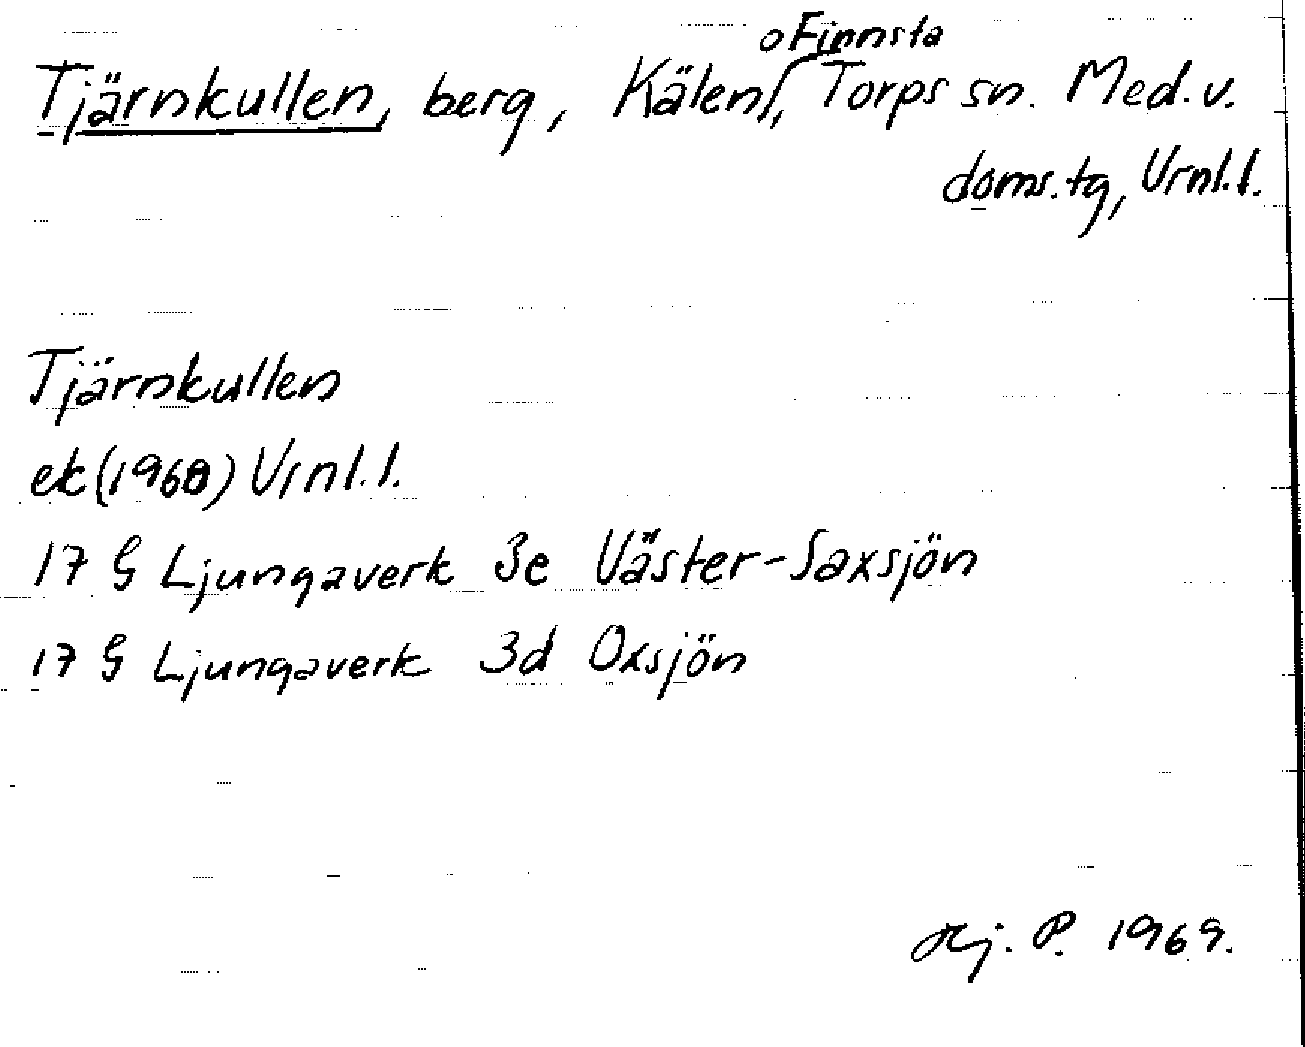 Tjärnkullen, berg, Kälen o Finnsta, Torps sn. Med. v.
doms. tg, Vrnl. l.
Tjärnkullen
ek (1968) Vrnl. l.
17 G Ljungaverk 3e Väster-Saxsjön
17 G Ljungaverk 3d Oxsjön
Hj. P. 1969.